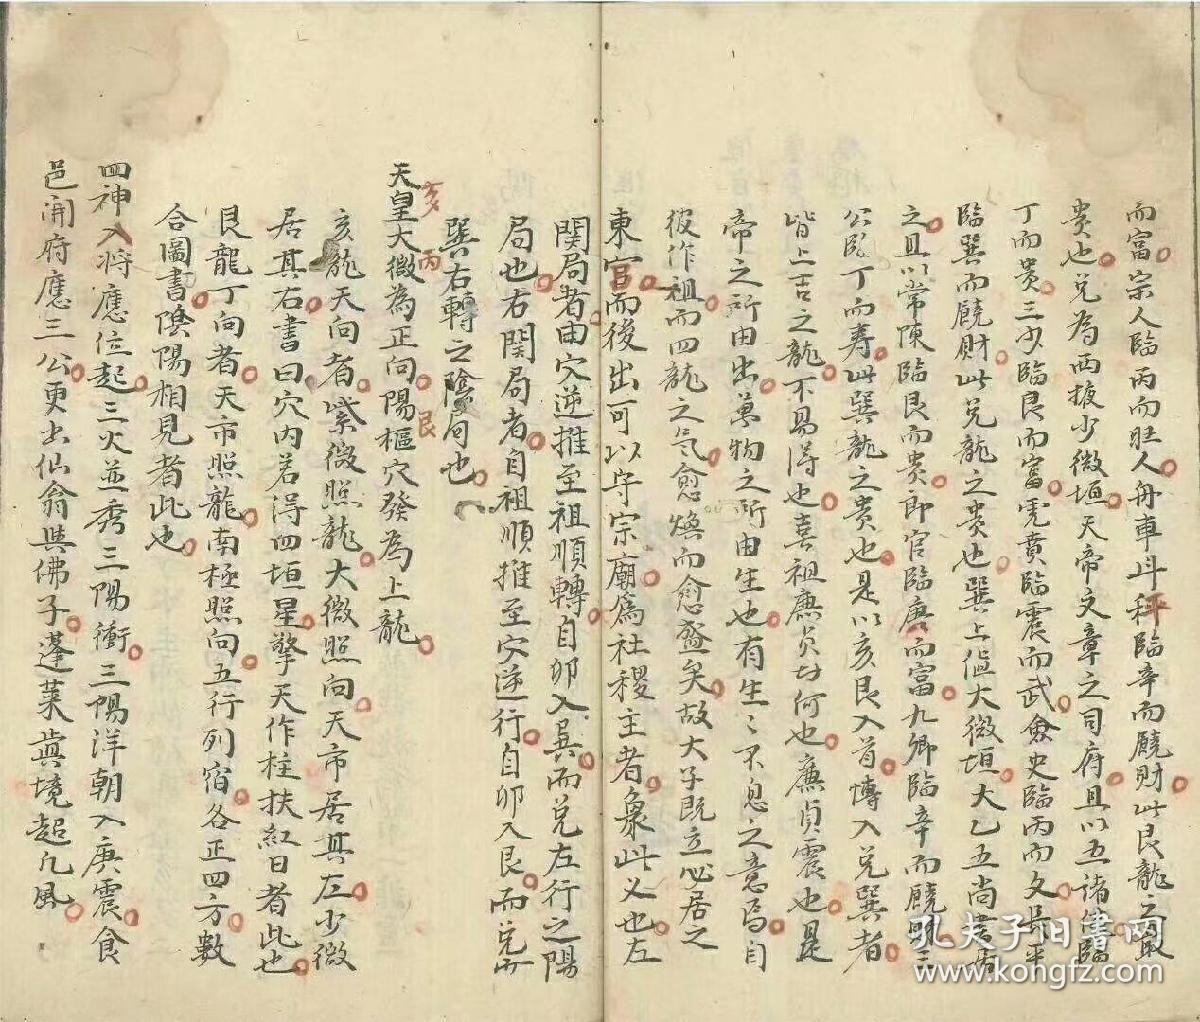 而富宗人臨丙而旺人舟車斗秤臨辛而饒財此艮龍之最
貴也兌為西掖少微垣天帝文章之司府且以五諸侯臨
丁而貴三少臨艮而富虎賁臨震而武僉史臨丙而文長平
臨巽而饒財此兌龍之貴也巽上值大微垣大乙五尚書
之且以常陳臨艮而貴郎官臨庚而富九卿臨辛而饒財三
公臨丁而寿此巽龍之貴也是以亥艮入首博入兌巽者
皆上吉之龍不易得也喜祖廉貞者何也廉貞震也是
帝之所由出萬物之所由生也有生〻不息之意焉自
彼作祖而四龍之气愈煥而愈盛矣故大子既立必居之
東宮而後出可以守宗廟為社稷主者象此义也左
関局者由穴逆推至祖順轉自卯入巽而兌左行之陽
局也右関局者自祖順推至穴逆行自卯入艮而兌
巽右轉之陰局也
天皇大微為正向陽樞穴發為上龍
亥 丙 艮
亥龍天向者紫微照龍大微照向天市居其左少微
居其右書曰穴内若得四垣星擎天作柱扶紅日者此也
艮龍丁向者天市照龍南極照向五行列宿各正四方數
合圖書陰陽相見者此也
四神入將應位起三火並秀三陽衝三陽洋朝入庚震食
邑開府應三公更出仙翁與佛子蓬萊真境超凡風
孔夫子旧书网
www.kongfz.com